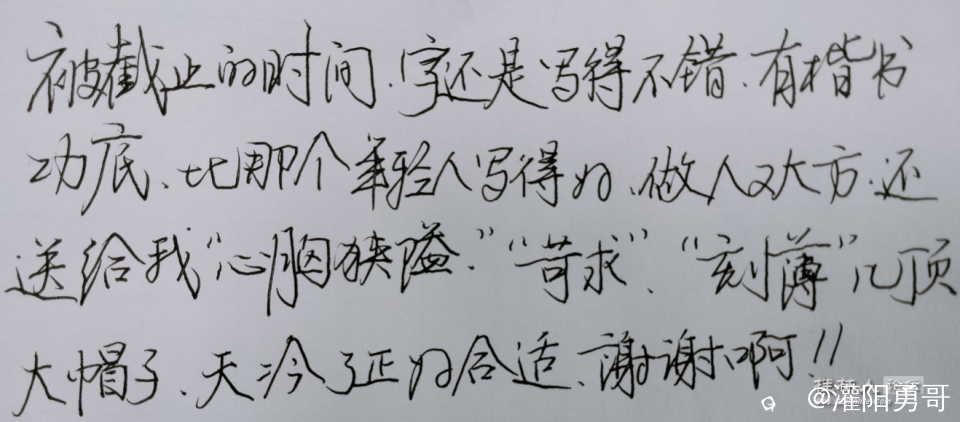 被截止的时间、字还是写得不错、有楷书
功底、比那个年轻人写得好、做人又大方.还
送给我“心胸狭隘.”“苛求”、“刻薄”几顶
大帽子、天冷了正好合适、谢谢啊!!
@灌阳勇哥